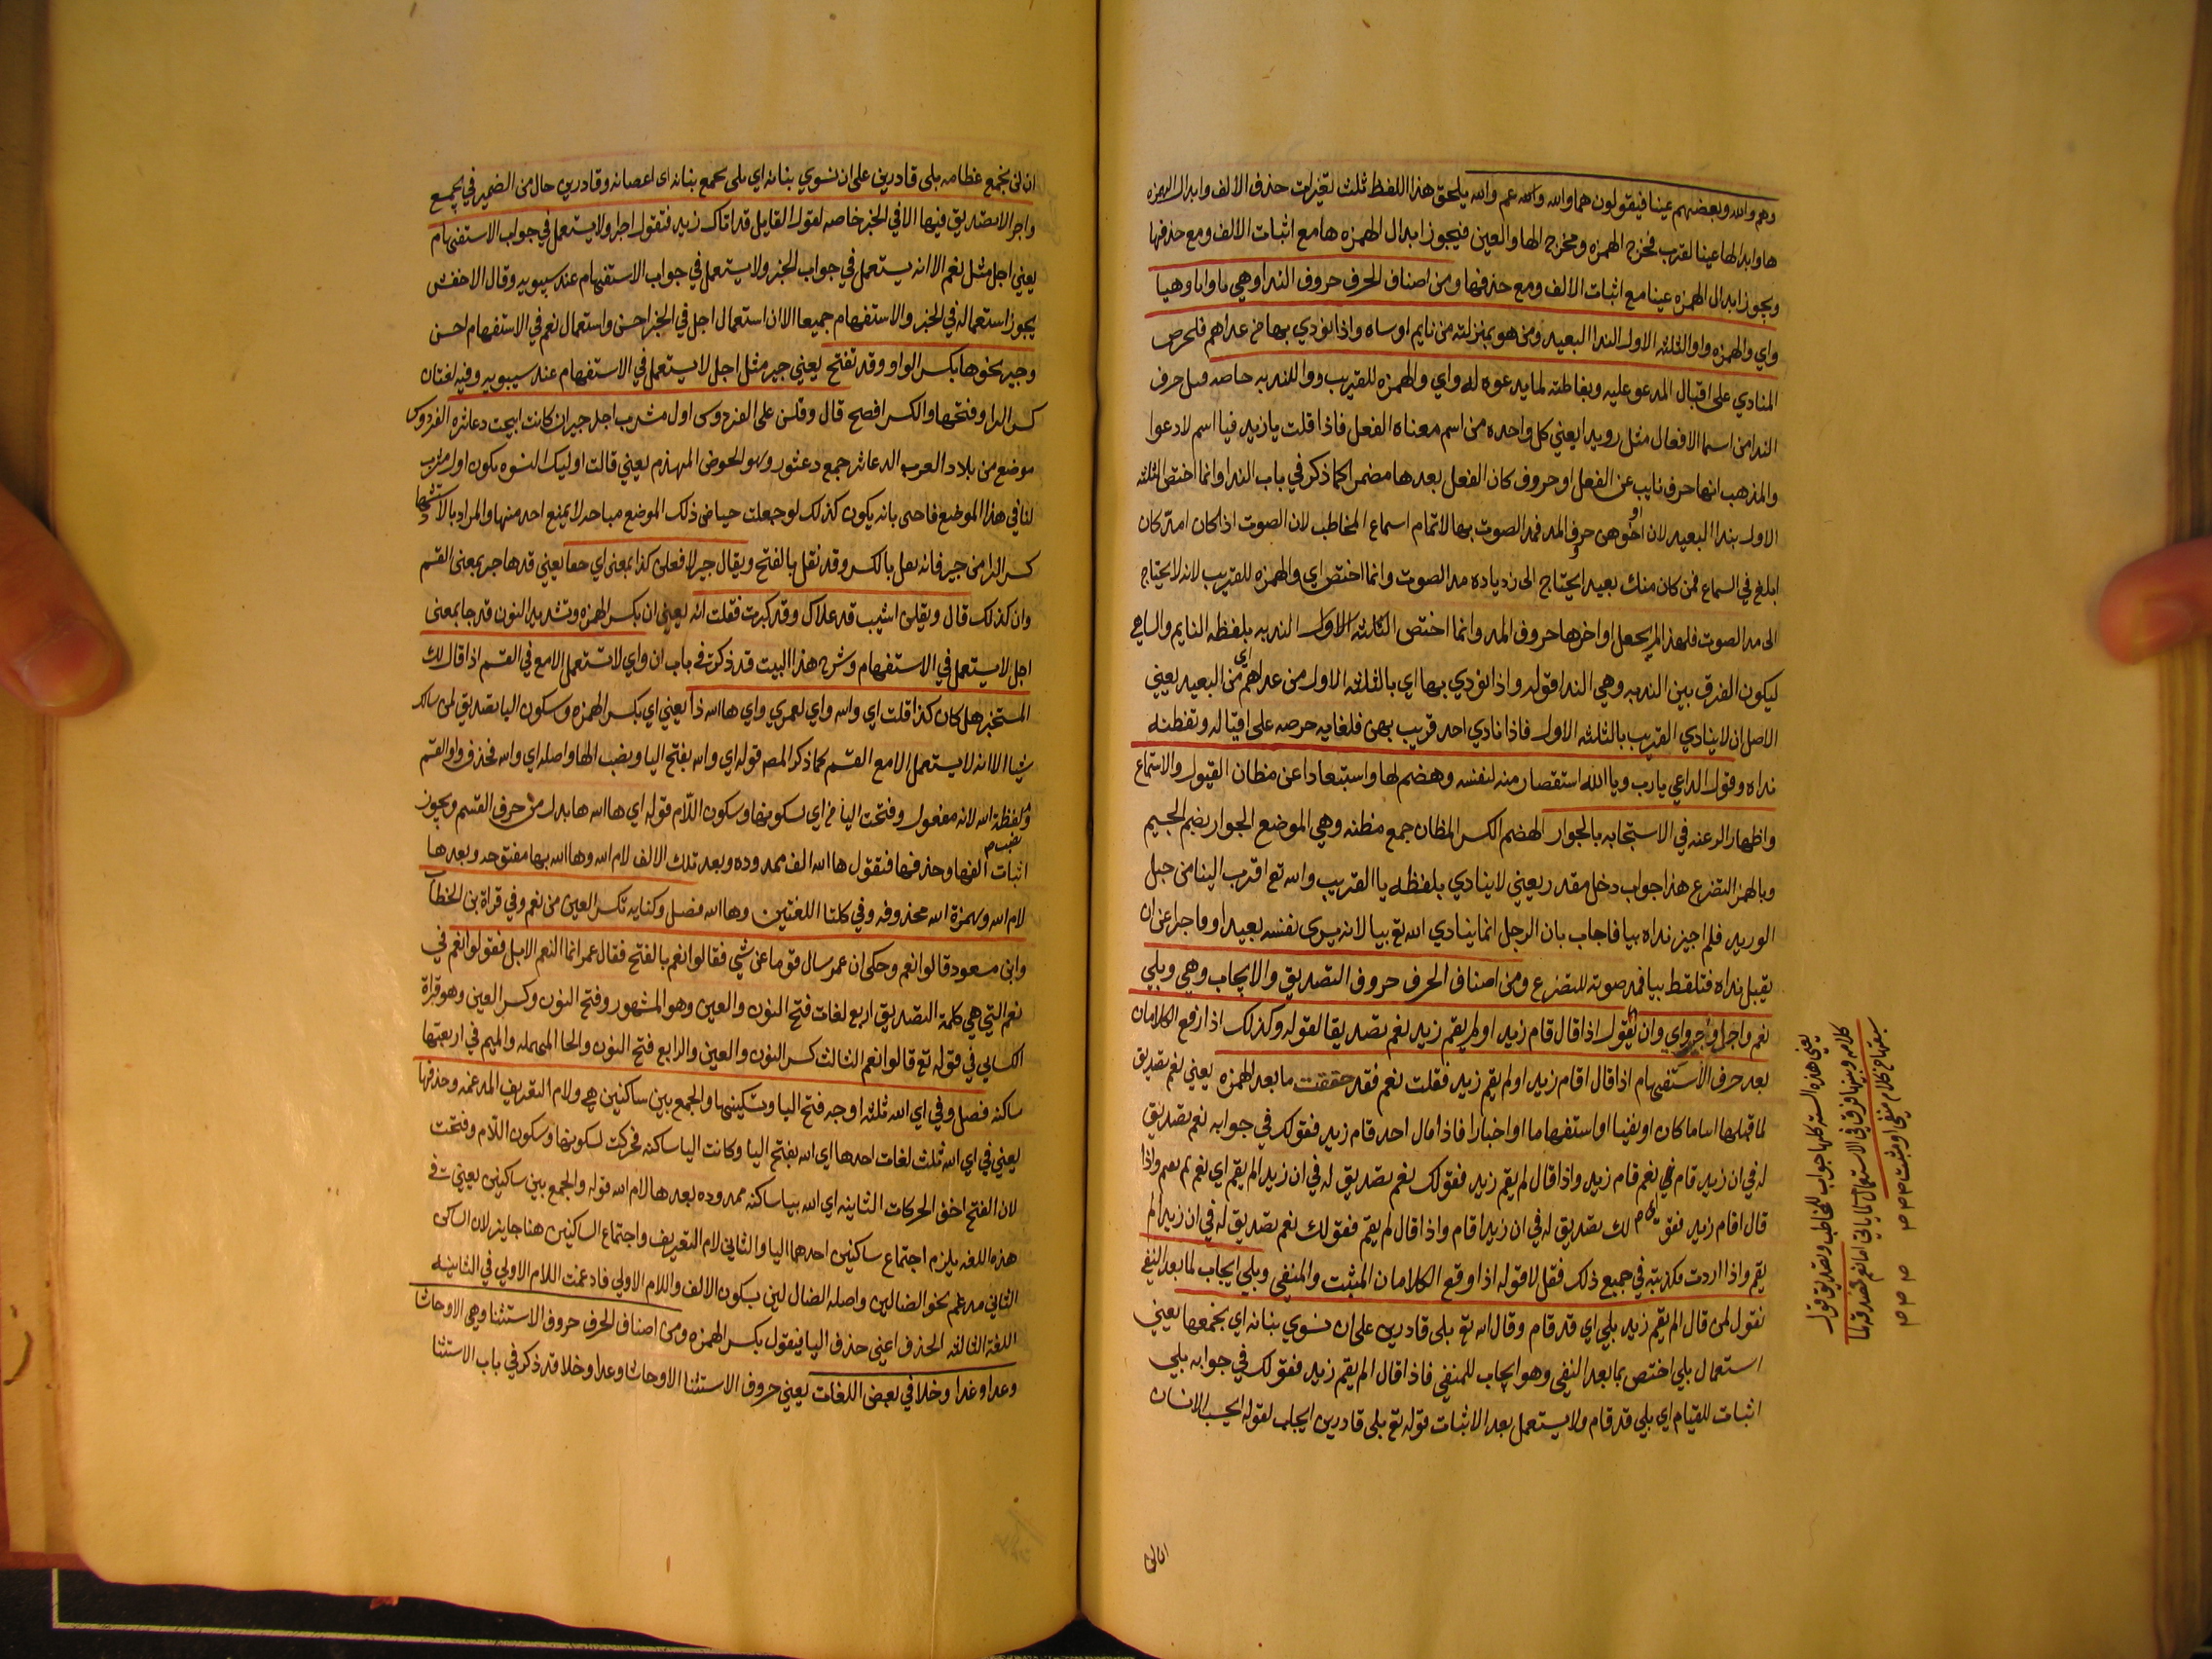 وهم والله وبعضهم عينا فيقولون هما والله وعم والله يلحق هذا اللفظ ثلث تغيرات حذف الالف وابدال الهمزه
ها وابدالها عينا لقرب مخرج الهمزه ومخرج الها والعين فيجوز ابدال الهمزه ها مع اثبات الالف ومع حذفها
ويجوز ابدال الهمزه عينا مع اثبات الالف ومع حذفها ومن اصناف الحرف حروف الندا وهي يا وايا وهيا
واي والهمزه ووا والثلثه الاول لندا البعيد ومن هو بمنزلته من نايم او ساه واذا نودي بها من عداهم فلحرص
المنادي على اقبال المدعو عليه ومفاطنته لما يدعوه له واي والهمزه للقريب ووا للندبه خاصه قيل حرف
الندا من اسما الافعال مثل رويدا يعني كل واحده من اسم معناه الفعل فاذا قلت يا زيد فيا اسم لادعوا
والمذهب انها حرف نايب عن الفعل او حروف كان الفعل بعدها مضمرا كما ذكر في باب الندا وانما اختص الثلثه
الاول بندا البعيد لان اخوهن حروف المد فمد الصوت بها لاتمام اسماع المخاطب لان الصوت اذا كان امتد كان
ابلغ في السماع فمن كان منك بعيدا يحتاج الى زدياده مد الصوت وانما اختص اي والهمزه للقريب لانه لا يحتاج
الى مد الصوت فلهذا لم يجعل اواخرها حروف المد وانما اختص الثلثه الاول الندبه بلفظه النايم والساهي
ليكون الفرق بين الندبه وهي الندا قوله واذا نودي بها اي بالثلثه الاول من عداهم اي من البعيد يعني
الاصل ان لا ينادي القريب بالثلثه الاول فاذا نادي احد قريب بهن فلغايه حرصه على اقباله وتفطنه
نداه وقول الداعي يا رب ويا الله استقصار منه لنفسه وهضم لها واستبعادا عن مظان القبول والاستماع
واظهار الرغبه في الاستجابه بالجوار الهضم الكسر المظان جمع مظنه وهي الموضع الجوار بضم الجيم
وبالهمز التضرع هذا جواب دخل مقدر يعني لا ينادي بلفظه يا القريب والله تع اقرب الينا من حبل
الوريد فلم اجيز نداه بيا فاجاب بان الرجل انما ينادي الله تع بيا لانه يرى نفسه بعيدا وفاجرا عن ان
يقبل نداه فتلفظ بيا فمد صوته للتضرع ومن اصناف الحرف حروف التصديق والايجاب وهي وبلي
نعم واجل وجير واي وان تقول اذا قال قام زيد او لم يقم زيد نعم تصديقا لقوله وكذلك اذا رفع الكلامان
بعد حرف الاستفهام اذا قال اقام زيد اولم يقم زيد فقلت نعم فقد حققت ما بعد الهمزه يعني نعم تصديق
لما قبلها اساما كان او نفيا او استفهاما او اخبارا فاذا قال احد قام زيد فقولك في جوابه نعم تصديق
له في ان زيد قام اي نعم قام زيد واذا قال لم يقم زيد فقولك نعم تصديق له في ان زيد الم يقم اي نعم لم يقم واذا
قال اقام زيد فقولك تصديق له في ان زيدا قام واذا قال لم يقم فقولك نعم تصديق له في ان زيدا لم
يقم واذا اردت تكذيبه في جميع ذلك فقل لا قوله اذا وقع الكلامان المثبت والمنفي وبلي ايجاب لما بعد النفي
تقول لمن قال الم يقم زيد بلي اي قد قام وقال الله تع بلى قادرين على ان نسوي بنانه اي نجمعها يعني
استعمال بلي اختص بما بعد النفي وهو ايجاب للمنفي فاذا قال الم يقم زيد فقولك في جوابه بلي
اثبات للقيام اي بلي قد قام ولا يستعمل بعد الاثبات قوله تع بلى قادرين ايجاب لقوله ايحسب الانسان
يعني هذه الستة كلها جواب للمخاطب وتصديق قول
كلامه وبينها فرق في الاستعمال كما ياتي اما نعم فمصدقه لما
سبقها من كلام منفي او مثبت
ان لن نجمع عظامه بلى قادرين على ان نسوي بنانه اي بلى نجمع بنانه اى اعضائه وقادرين حال من الضمير في نجمع
واجل لا تصديق فيها الا في الخبر خاصه لقول القايل قد اتاك زيد فتقول اجل ولا يستعمل في جواب الاستفهام
يعني اجل مثل نعم الا انه يستعمل في جواب الخبر ولا يستعمل في جواب الاستفهام عند سيبويه وقال الاخفش
يجوز استعماله في الخبر والاستفهام جميعا الا ان استعمال اجل في الخبر احسن واستعمال نعم في الاستفهام احسن
وجير نحوها بكسر الواو وقد تفتح يعني جير مثل اجل لا يستعمل في الاستفهام عند سيبويه وفيه لغتان
كسر الرا وفتحها والكسر افصح قال وقلن على الفردوس اول مشرب اجل جير ان كانت ابيحت دعاثره الفردوس
موضع من بلاد العرب الدعاثر جمع دعثور وهو الحوض المهدم يعني قالت اوليك النسوه يكون اول مشرب
لنا في هذا الموضع فاحى بانه يكون كذلك لو جعلت حياض ذلك الموضع مباحه لا يمنع احد منها والمراد بالاستشهاد
كسر الرا من جير فانه نقل بالكسر وقد نقل بالفتح ويقال جير لافعلن كذا بمعنى اي حقا يعني قد ها جير بمعنى القسم
وان كذلك قال ويقلن اشيب قد علاك وقد كبرت فقلت انه يعني ان بكسر الهمزه وتشديد النون قد جا بمعنى
اجل لا يستعمل في الاستفهام وشرح هذا البيت قد ذكرت في باب ان واي لا تستعمل الا مع في القسم اذا قال لك
المستخبر هل كان كذا قلت اي والله واي لعمري واي ها الله ذا يعني اي بكسر الهمزه وسكون اليا تصديق لمن سالك
شيا الا انه لا يستعمل الا مع القسم كما ذكر المص قوله اي والله بفتح اليا وبنصب الها واصله اي والله فحذف واو القسم
ولفظة الله لانه مفعول وفتحت اليا من اي لسكونها وسكون اللام قوله اي ها الله ها بدل من حرف القسم ويجوز
اثبات الفها وحذفها فتقول ها الله الف ممدوده وبعد تلك الالف لام الله وها الله بها مفتوحه وبعدها
لام الله وبهمزة الله محذوفه وفي كلتا اللغتين وها الله فصل وكنايه تكسر العين من نعم وفي قراة بن الخطاب
وابن مسعود قالوا نعم وحكى ان عمر سال قوما عن شي فقالوا نعم بالفتح فقال عمر انما النعم الابل فقولوا نعم في
نعم التي هي كلمة التصديق اربع لغات فتح النون والعين وهو المشهور وفتح النون وكسر العين وهو قراة
الكسايي في قوله تع قالوا نعم الثالث كسر النون والعين والرابع فتح النون والحا المهمله والميم في اربعتها
ساكنه فصل وفي اي الله ثلثه اوجه فتح اليا وتسكينها والجمع بين ساكنين هي ولام التعريف المدغمه وحذفها
يعني في اي الله ثلث لغات احدها اى الله بفتح اليا وكانت اليا ساكنه فحركت لسكونها وسكون اللام وفتحت
لان الفتح اخف الحركات الثانيه اي الله بيا ساكنه ممدوده بعدها لام الله قوله والجمع بين ساكنين يعني في
هذه اللغه يلزم اجتماع ساكنين احدهما اليا والثاني لام التعريف واجتماع الساكنين هنا جايز لان الساكن
الثاني مدغم نحو الضالين واصله الضال لين بسكون الالف واللام الاولى فادغمت اللام الاولي في الثانيه
اللغة الثالثه الحذف اعني حذف اليا فيقول بكسر الهمزه ومن اصناف الحرف حروف الاستثنا وهي الا وحاشا
وعدا وخلا في بعض اللغات يعني حروف الاستثنا الا وحاشا وعدا وخلا قد ذكر في باب الاستثنا